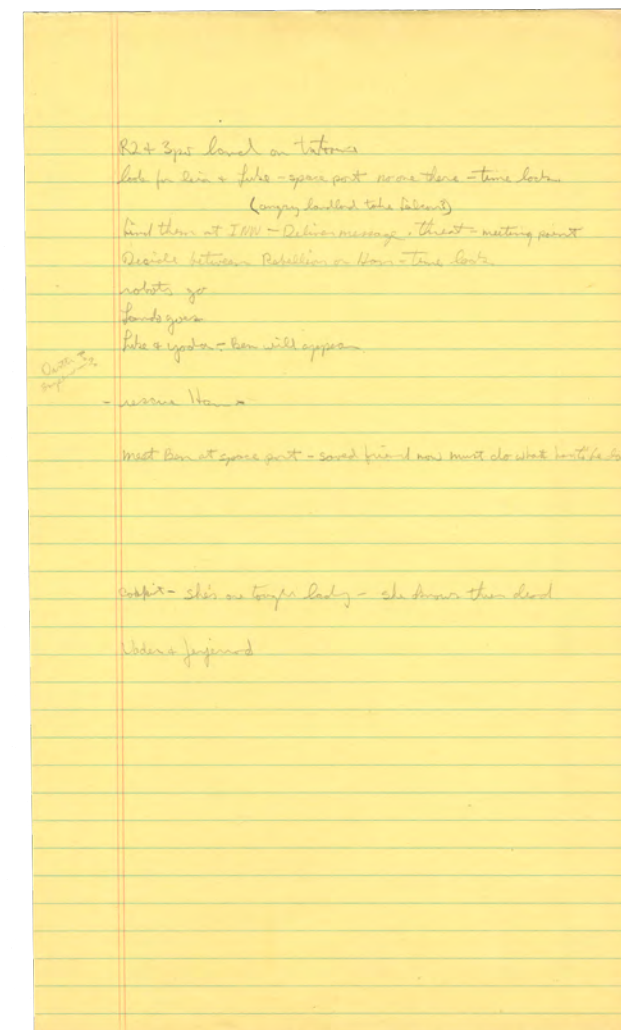 R2 + 3po land on tatooine
look for Leia + Luke - space port no one there - time lock
(angry landlord take falcont)
find them at INN - Deliver message, threat - meeting point
Decide between Rebellion or Han - Time lock
robots go
Lando goes
Luke & yoda - Ben will appear
Death
- rescue Han -
meet Ben at space port - saved friend now must do what
cockpit - she's one tough lady - she knows them dead
Vader & Jerjerrod